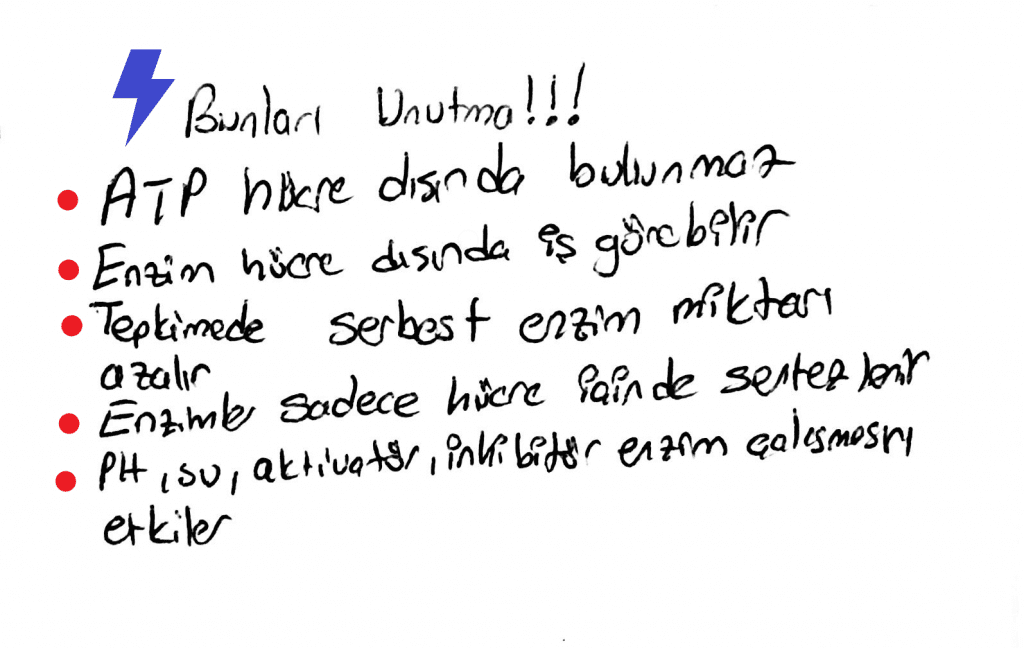 Bunları Unutma!!!
ATP hücre dışında bulunmaz
Enzim hücre dışında iş görebilir
Tepkimede serbest enzim miktarı
azalır
Enzimler sadece hücre içinde sentezlenir
PH, su, aktivatör, inhibitör enzim çalışmasını
etkiler